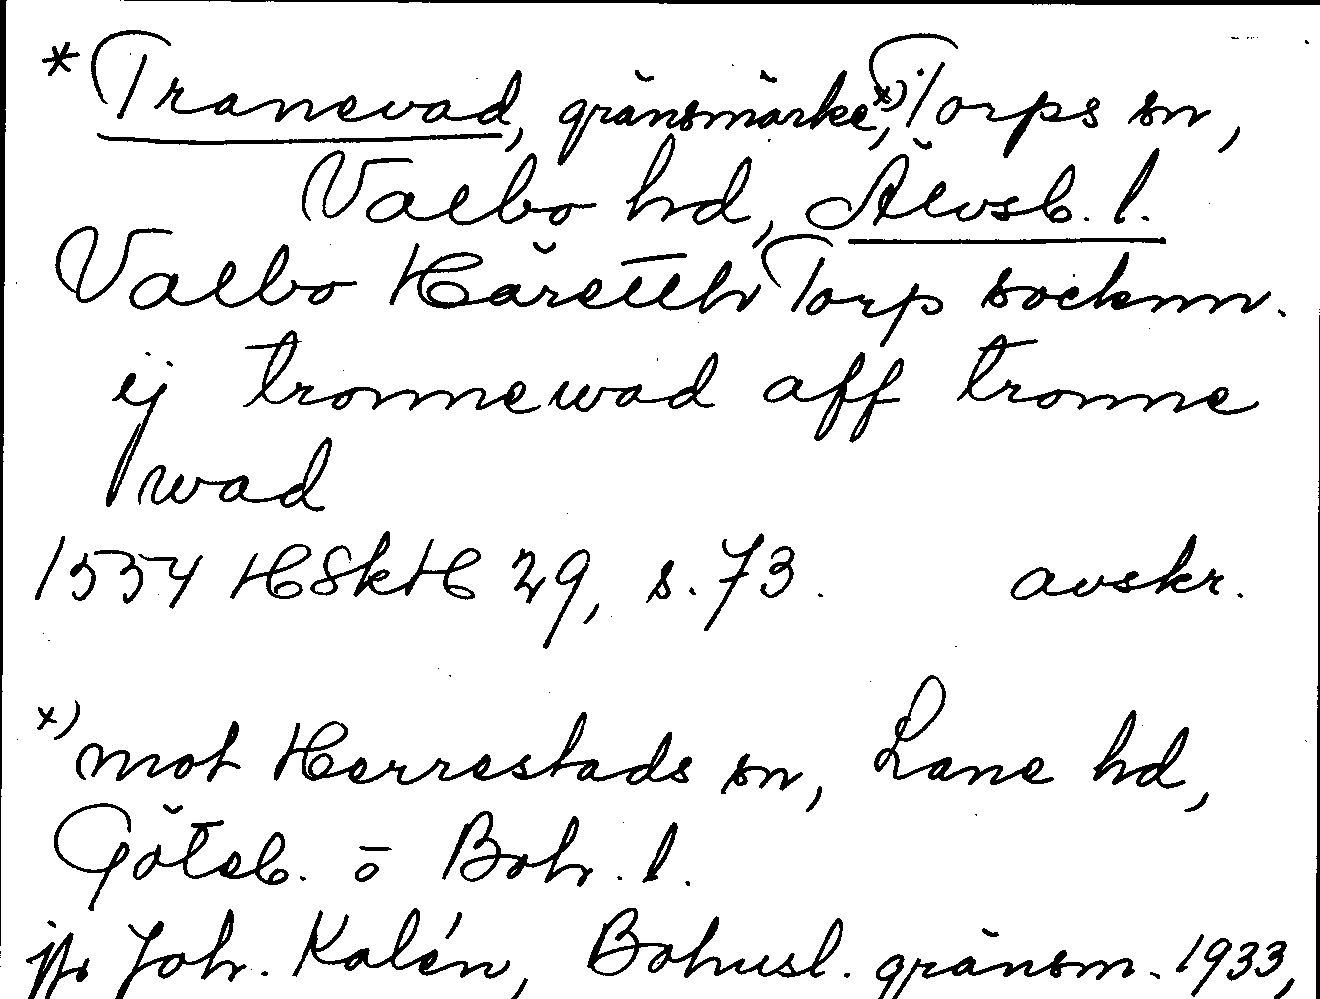 * Tranevad, gränsmärke,x) Torps sn,
Valbo hd, Älvsb. l.
Valbo Häretth Torp socknn.
ij tronnewad aff tronne
wad
1554 HSkH 29, s. 73. avskr.
x) mot Herrestads sn, Lane hd,
Göteb. o Boh. l.
jfr Joh. Kalén, Bohusl. gränsm. 1933,